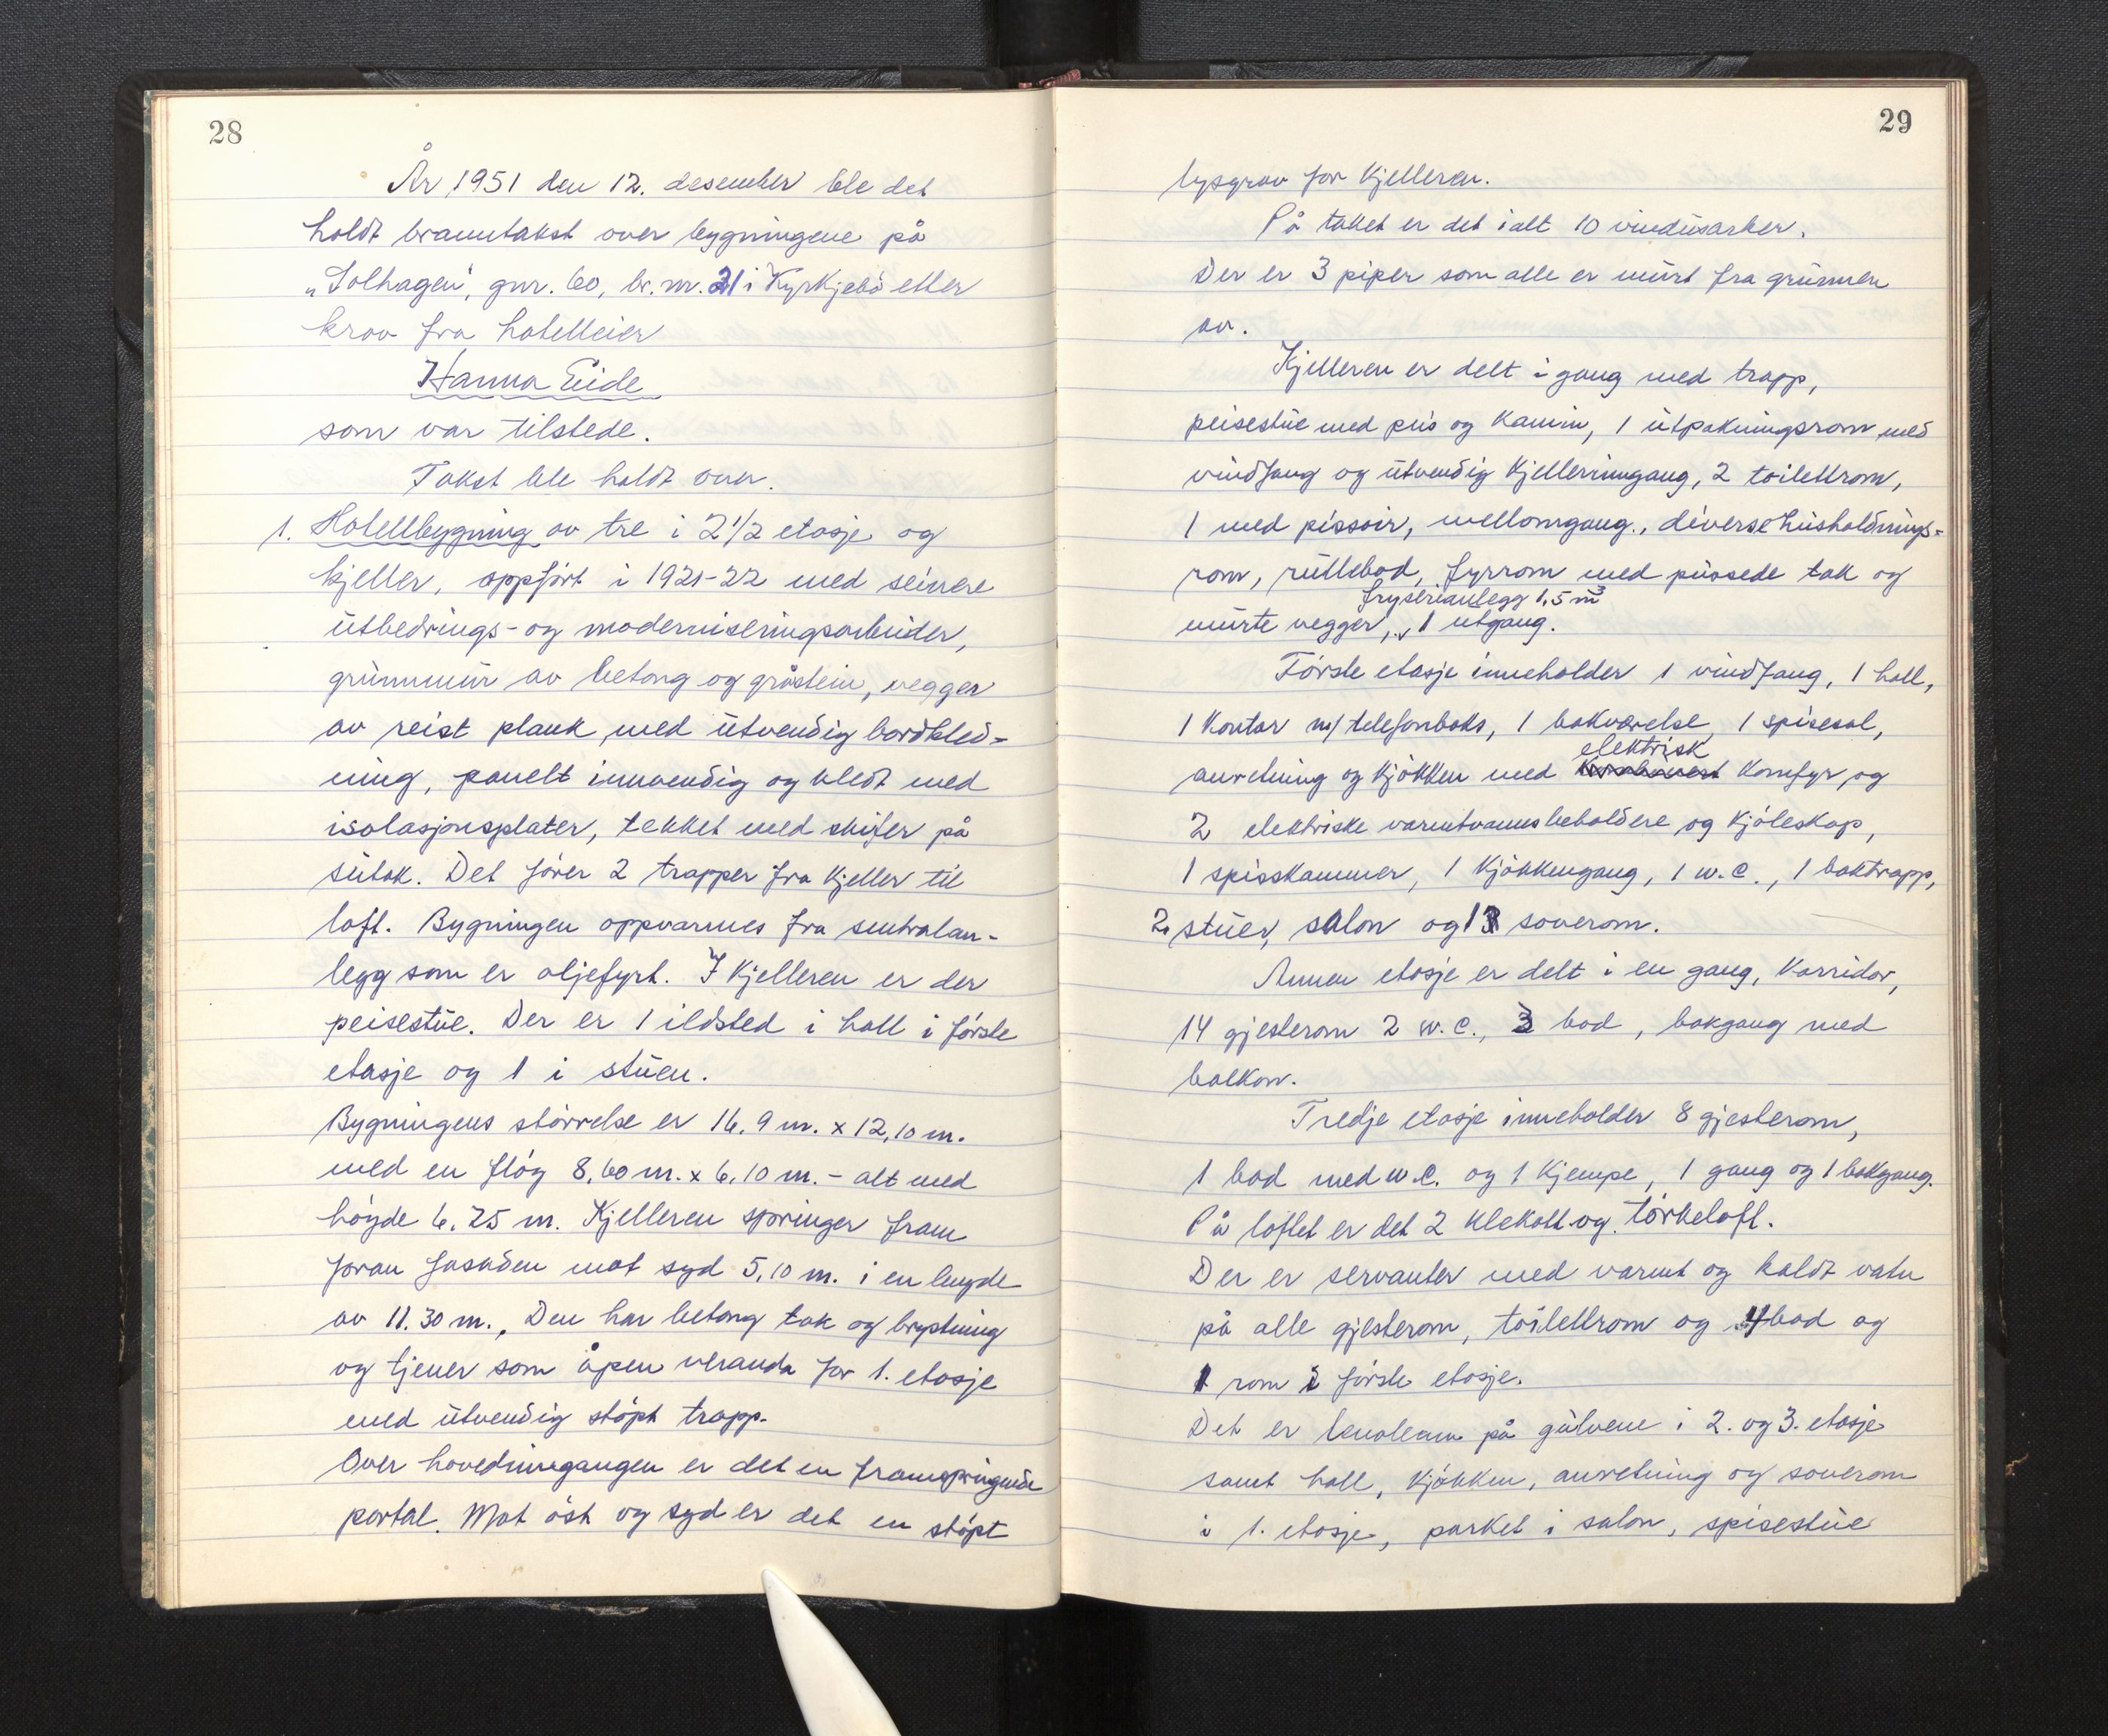 28
År 1951 den 12. desember ble det
holdt branntakst over bygningene på
„Solhagen", gnr. 60, br.nr. 21 i Kyrkjebø etter
krav fra hotelleier
Hanna Eide
som var tilstede.
Takst ble holdt over.
1. Hotellbygning av tre i 2 1/2 etasje og
kjeller, oppført i 1921-22 med seinere
utbedrings- og moderniseringsarbeider,
grunnmur av betong og gråstein, vegger
av reist plank, med utvendig bordkled-
ning, panelt innvendig og kledt med
isolasjonsplater, tekket med skifer på
sutak. Det fører 2 trapper fra kjeller til
loft. Bygningen oppvarmes fra sentralan-
legg som er oljefyrt. I kjelleren er der
peisestue. Der er 1 ildsted i hall i første
etasje og 1 i stuen.
Bygningens størrelse er 16.9 m. x 12,10 m.
med en fløy 8,60 m. x 6,10 m. - alt med
høyde 6,25 m. Kjelleren springer fram
foran fasaden mot syd 5,10 m. i en lengde
av 11.30 m., Den har betong tak og brystning
og tjener som åpen veranda for 1. etasje
med utvendig støpt trapp.
Over hovedinngangen er det en framspringende
portal. Mot øst og syd er det en støpt
29
lysgrav for kjelleren.
På taket er det ialt 10 vindusarker.
Der er 3 piper som alle er murt fra grunnen
av.
Kjelleren er delt i gang med trapp,
peisestue med peis og kamin, 1 utpakningsrom med
vindfang og utvendig kjellerinngang, 2 toilettrom,
1 med pissoir, mellomgang., diverse husholdnings-
rom, rullebod, fyrrom med pussede tak og
fryserianlegg 1,5 m³
murte vegger, 1 utgang.
Første etasje inneholder 1 vindfang, 1 hall,
1 kontor m/ telefonboks, 1 bakværelse, 1 spisesal,
elektrisk
anretning og kjøkken med komfyr og
2 elektriske varmtvannsbeholdere og kjøleskap,
1 spisskammer, 1 kjøkkengang, 1 w.c., 1 baktrapp,
2 stuer, salon og 13 soverom.
Annen etasje er delt i en gang, korridor,
14 gjesterom 2 w.c., 3 bad, bakgang med
balkon.
Tredje etasje inneholder 8 gjesterom,
1 bad med w.c. og 1 kjempe, 1 gang og 1 bakgang.
På loftet er det 2 klekott og tørkeloft.
Der er servanter med varmt og kaldt vatn
på alle gjesterom, toilettrom og 4 bad og
1 rom i første etasje.
Det er linoleum på gulvene i 2. og 3. etasje
samt hall, kjøkken, anretning og soverom
i 1. etasje, parket i salon, spisestue